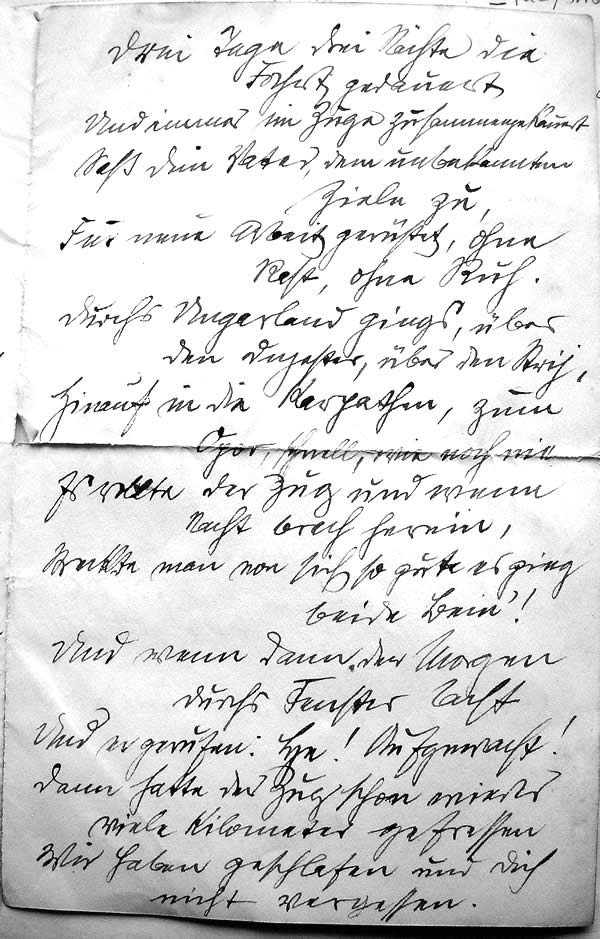 Drei Tage drei Nächte die
Fahrt gedauert
Und immer im Zuge zusammengekauert
Saß dein Vater, dem unbekannten
Ziele zu,
Für neue Arbeit gerüstet, ohne
Rast, ohne Ruh.
Durchs Ungarland gings, über
den Dnjester, über den Strij,
Hinauf in die Karpathen, zum
Opor, schnell, wie noch nie
Es rollte der Zug und wenn
Nacht brach herein,
Streckte man von sich so gut es ging
beide Bein'!
Und wenn dann der Morgen
durchs Fenster lacht
Und er gerufen: He! Aufgewacht!
Dann hatte der Zug schon wieder
viele Kilometer gefressen
Wir haben geschlafen und dich
nicht vergessen.